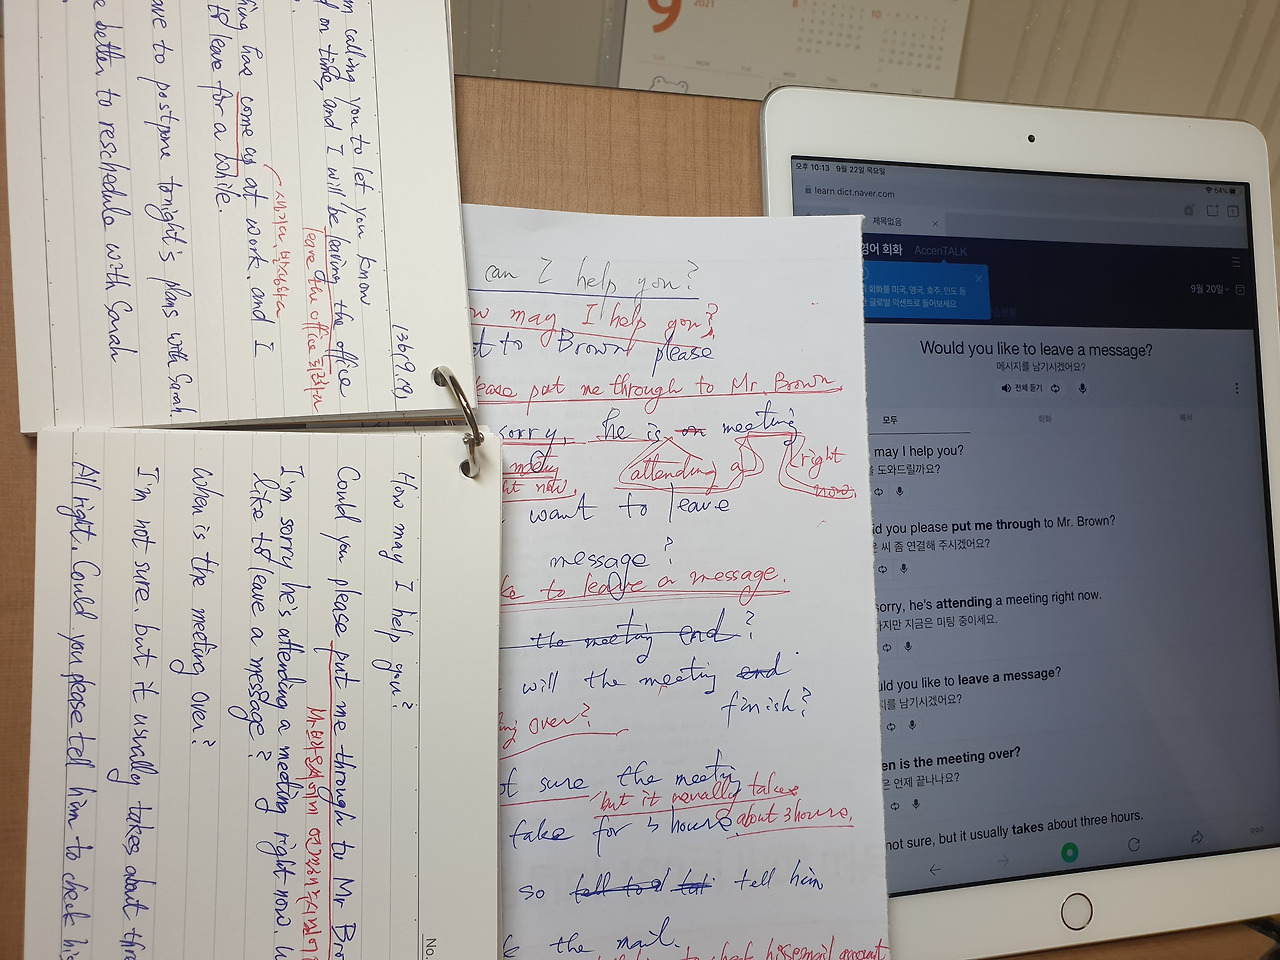 9
2021
8
10
SUN
MON
TUE
WED
THU
FRI
SAT
136(9.19)
m calling you to let you know
d on time, and I will be leaving the office
leave the office 퇴근하다
hing has come up at work, and I
생기다, 발생하다
to leave for a while.
ave to postpone tonight's plans with Sarah.
e better to reschedule with Sarah
No.
How may I help you?
Could you please put me through to Mr Bro
I'm sorry he's attending a meeting right now. W
like to leave a message?
When is the meeting over?
I'm not sure. but it usually takes about thre
All right. Could you please tell him to check his
can I help you?
ow may I help you?
to Brown please
ease put me through to Mr. Brown
sorry, he is on meeting
attending a
right
now.
meeting
ht now.
want to leave
message?
ke to leave a message.
the meeting end?
will the meeting end
finish?
ing over?
ot sure the meeting
but it usually takes
take for 3 hours about 3 hours.
so tell to tell him
the mail.
오후 10:13 9월 22일 목요일
54%
learn.dict.naver.com
제목없음
영어 회화 AccenTALK
회화를 미국, 영국, 호주, 인도 등
글로벌 악센트로 들어보세요
9월 20일
Would you like to leave a message?
메시지를 남기시겠어요?
전체 듣기
모두
회화
해석
may I help you?
도와드릴까요?
d you please put me through to Mr. Brown?
씨 좀 연결해 주시겠어요?
sorry, he's attending a meeting right now.
지만 지금은 미팅 중이세요.
uld you like to leave a message?
지를 남기시겠어요?
en is the meeting over?
은 언제 끝나나요?
not sure, but it usually takes about three hours.